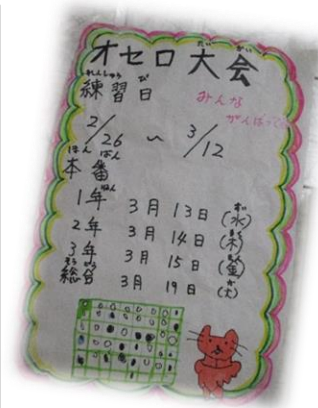 オセロ大会
れんしゅう
練習日
みんな
がんばって
2/26 ～ 3/12
ほんばん
本番
1年 3月 13日 (水)
2年 3月 14日 (木)
3年 3月 15日 (金)
総合 3月 19日 (火)